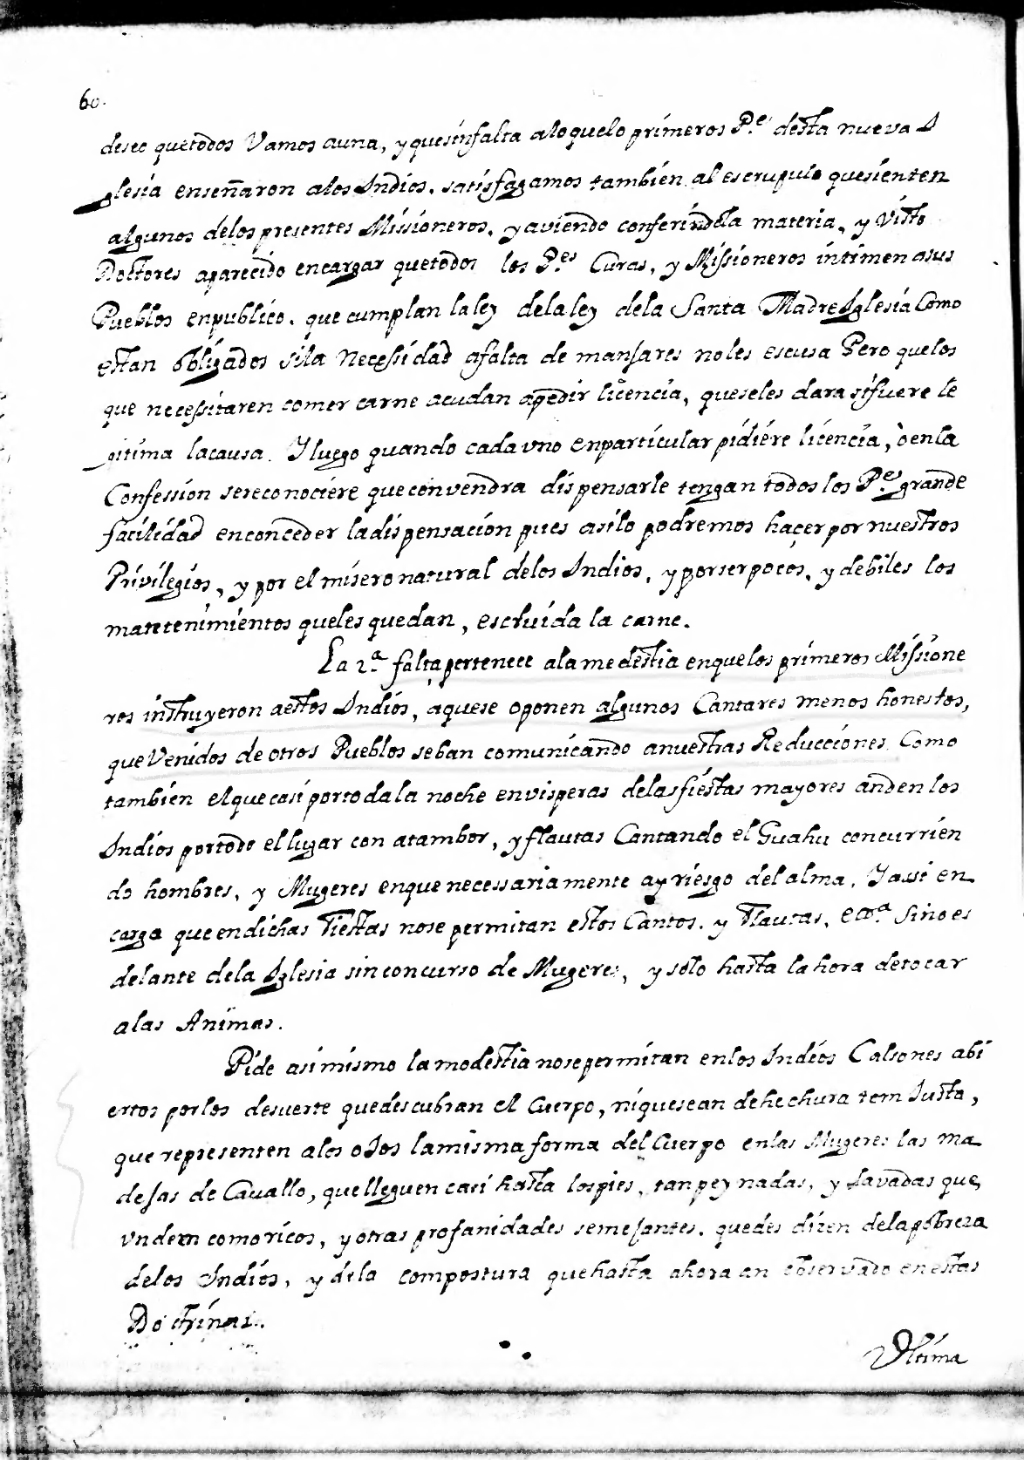 60.
deseo quetodos Vamos auna, y quesinfalta aloquelo primeros P.e desta nueva I
glesia enseñaron alos Indios. satisfagamos tambien al escrupulo quesienten
algunos delos presentes Missioneros. y aviendo conferindola materia, y Visto
Doctores aparecido encargar quetodos los P.es Curas, y Missioneros intimen asus
Pueblos enpublico. que cumplan la ley dela ley dela Santa Madre Iglesia Como
estan obligados sila Necessidad afalta de manjares noles escusa Pero quelos
que necessitaren comer carne acudan apedir licencia, queseles dara sifuere le
gitima lacausa. Y luego quando cada vno enparticular pidiere licencia, òenla
Confession sereconociere que convendra dispensarle tengan todos los P.es grande
facilidad enconceder ladispensacion pues asilo podremos haçer por nuestros
Privilegios, y por el misero natural delos Indios, y porserpocos, y debiles los
mantenimientos queles quedan, escluida la carne.
La 2.a falta pertenece ala medestia enquelos primeros Missione
ros instruyeron aestos Indios, aquese oponen algunos Cantares menos honestos,
que Venidos de otros Pueblos seban comunicando anuestras Reducciones. Como
tambien elquecasi portodala noche envisperas delasfiestas mayores anden los
Indios portodo ellugar con atambor, y flautas Cantando el Guahu concurrien
do hombres, y Mugeres enque necessariamente ay riesgo del alma. Yassi en
carga que endichas Fiestas nose permitan estos Cantos. y Flautas, ecta.a Sino es
delante dela Iglesia sin concurso de Mugeres, y solo hasta la hora detocar
alas Animas.
Pide asimismo la modestia nosepermitan enlos Indios Calsones abi
ertos porlos desuerte quedescubran el Cuerpo, niquesean dehechura tem Iusta,
que representen alos oJos lamisma forma del Cuerpo enlas Mugeres las ma
deJas de Cavallo, quelleguen casi hasta lospies, tan peynadas, y Lavadas que
vnden como ricos, y otras profanidades semejantes. quedes dizen delapobreza
delos Indios, y dela compostura quehasta ahora an observado enestas
Doctrinas.
Vltima